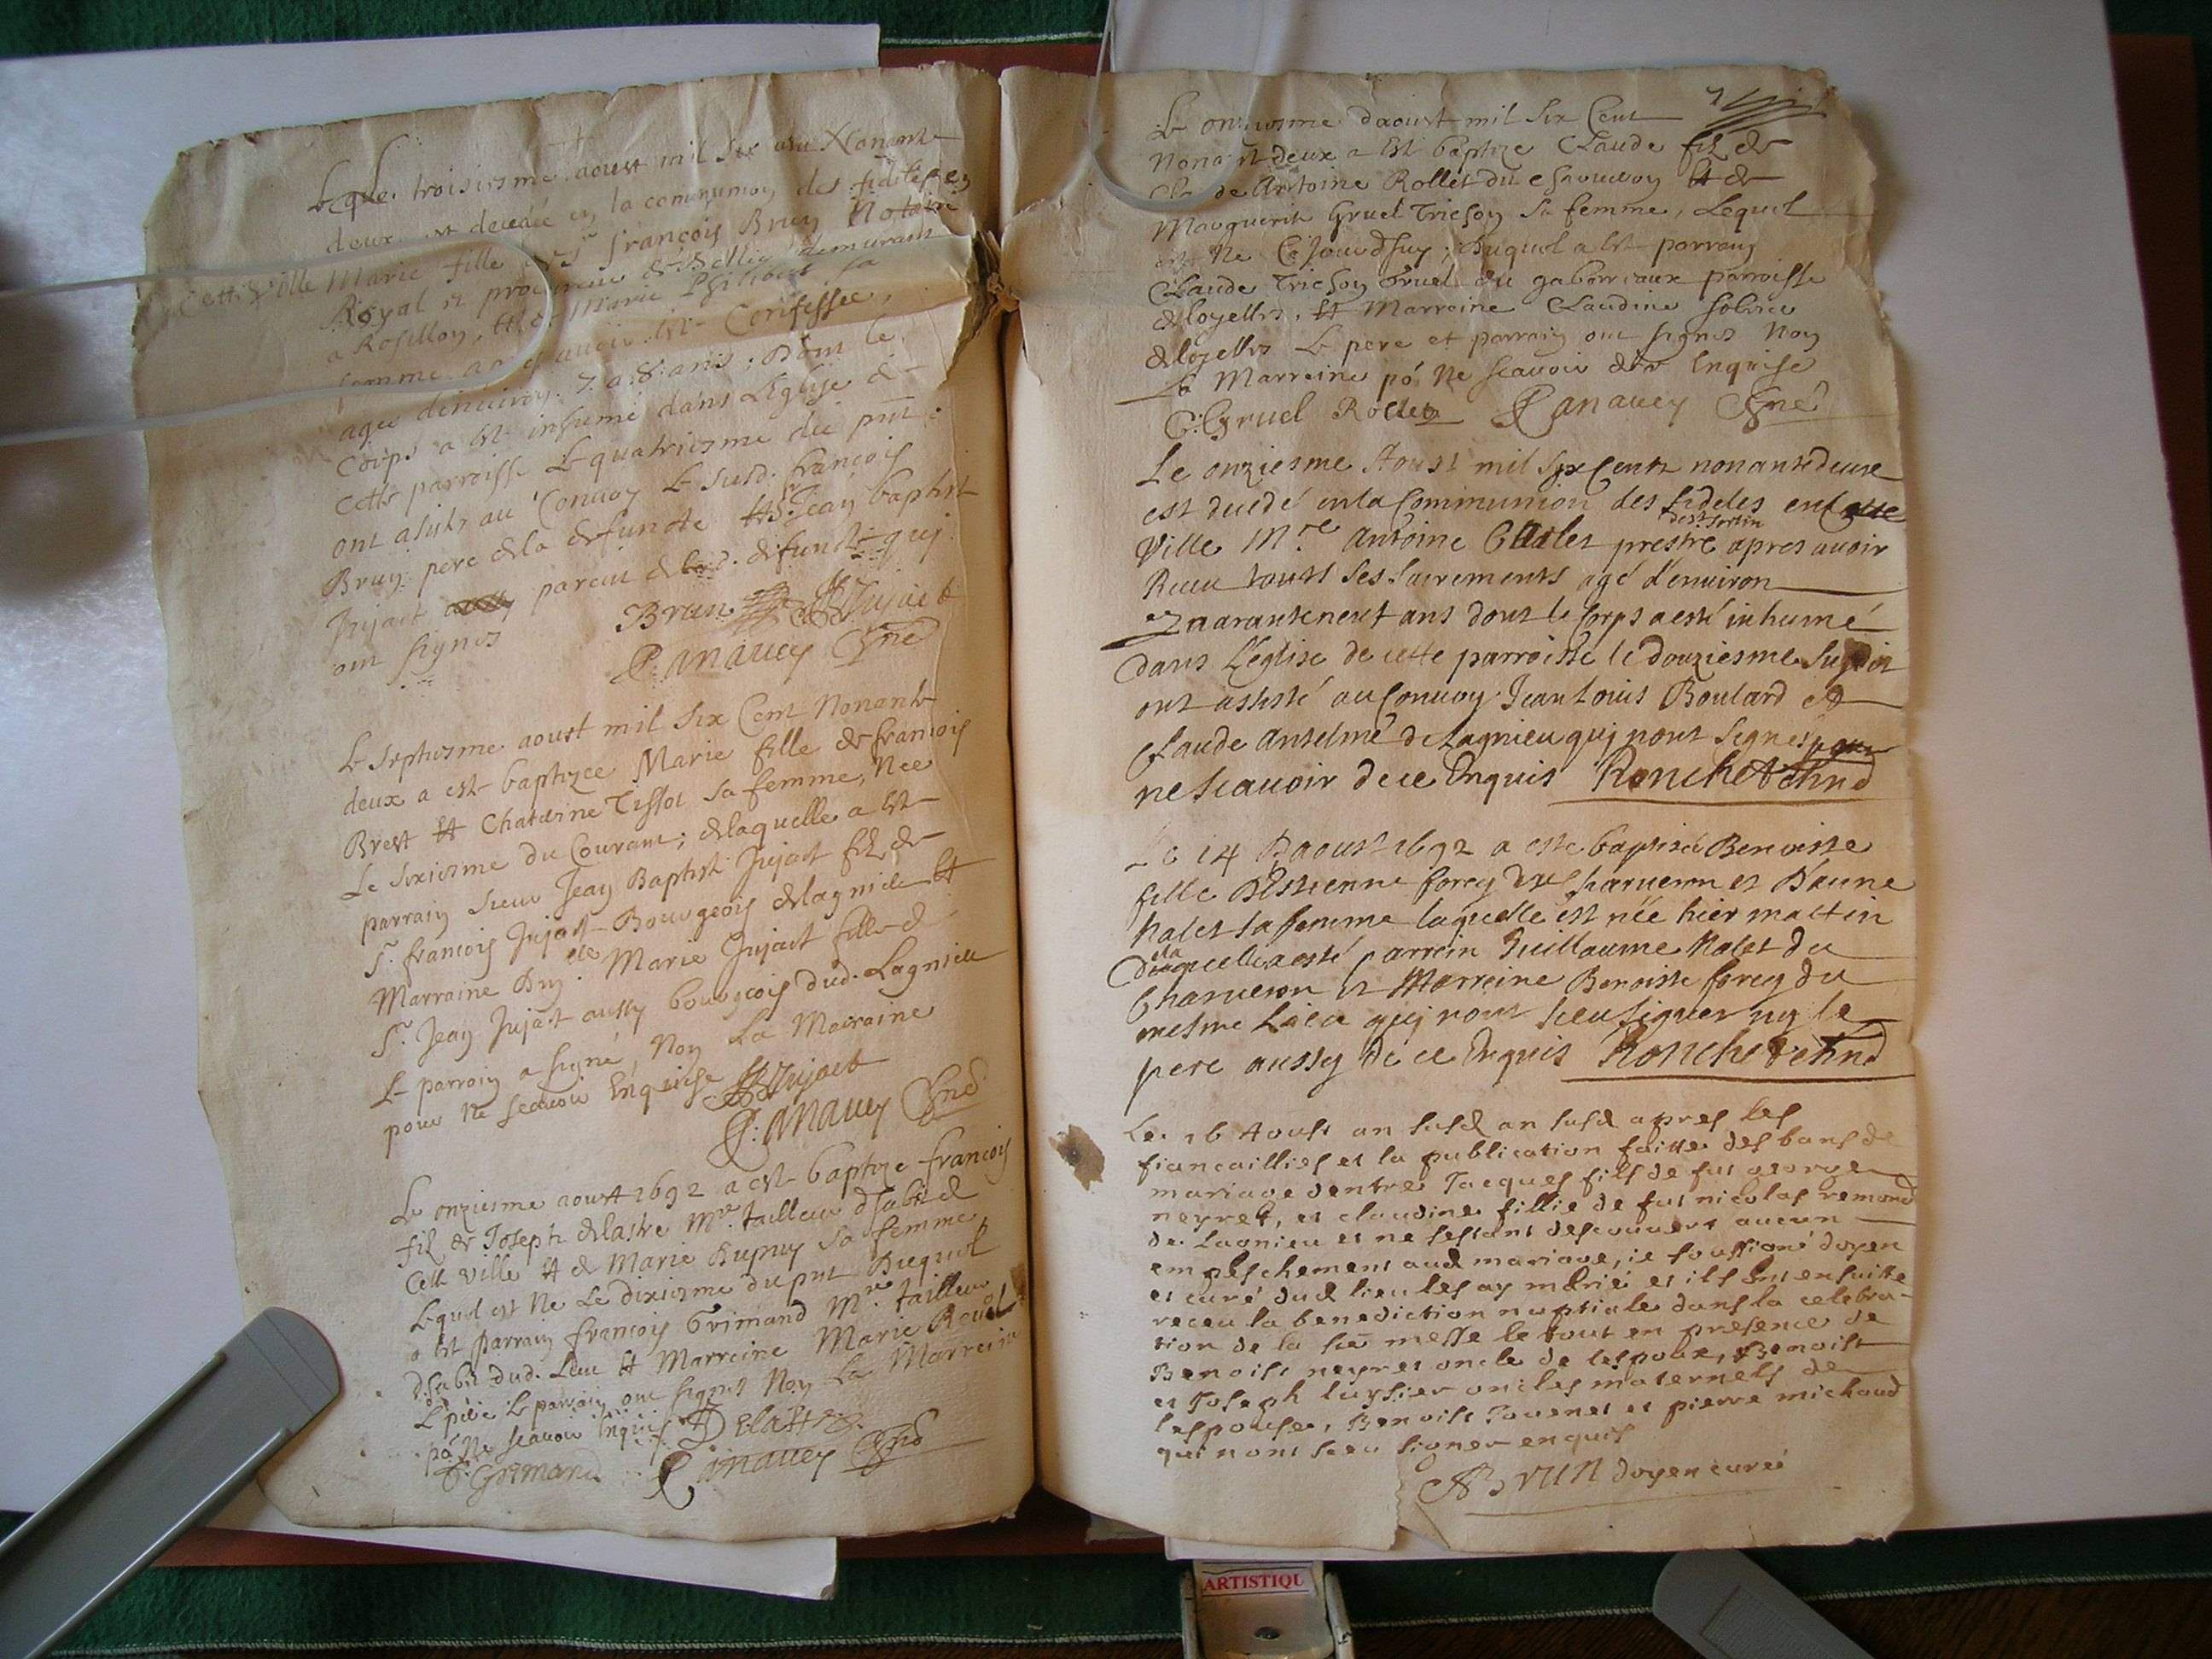 troisiesme aoust mil six Nonante
deux est decedée en la communion des fidelles en
Cette Ville Marie fille françois Brun Notaire
Royal et procureur de Belley demurant
a Rosillon, Et de Marie sa
femme. avoir Confessée,
agée denuiron. 7. a. 8. ans; Dont le
Corps a est inhumé dans Leglise de
Cette parroisse Le quatriesme du pnt:
ont asistés au Conuoy Le susd. françois
Brun pere de la defuncte Et Sr. Jean baptist
Jujact parent de lad. defuncte qui
ont signes Brun JBJujact
P: Manuey
Le septiesme aoust mil six Cent Nonante
deux a est baptizee Marie fille de francois
Brest Et Chaterine Tissot sa femme, Née
Le sixiesme du Courant; de laquelle a est
parrain sieur Jean Baptist Jujact fils de
Sr. francois Jujact Bourgeois de lagnieu Et
Marraine Marie Jujact fille de
Sr. Jean Jujact aussy bourgeois dud. Lagnieu
Le parrain a signé, Non La Marraine
pour Ne scauoir Enquise JBJujact
Le onziesme aoust 1692 a est baptize francois
fils de Joseph delastre Mre. tailleur dhabit de
Cette ville Et de Marie Dupuy sa femme,
Lequel est Ne Le dixiesme du pnt Duquel
a est parrain francois Grimand Mre. tailleur
dhabit dud. Lieu Et Marraine Marie
Le père Le parrain ont signes Non La Marraine
po. Ne scauoir Enquis Delastre
F. Grimand
Le onziesme daoust mil six Cent
Nonante deux a est baptize Claude fils de
de Antoine Rollet du Et de
Marguerite Gruel Trichon sa femme, Lequel
est Ne Ce jourdhuy; Duquel a est parrain
Claude Trichon Gruel du gaborreaux parroisse
de loyettes, Et Marraine Claudine
de loyettes Le pere et parrain ont signes Non
La Marraine po. Ne scauoir de Enquise
C. Gruel Rollet
Le onziesme Aoust mil six Cents nonante deux
est decedé en la Communion des fideles en Cette
Ville Mre. Antoine prestre apres auoir
Receu touts ses sacrements agé d'enuiron
quarante neuf ans dont le Corps a esté inhumé
dans L'eglise de cette parroisse le douziesme susdit
ont assisté au Conuoy Jean Louis Boulard et
Claude Anselme de Lagnieu qui n'ont signes pour
ne scauoir de ce Enquis Ronchet
Le 14 Daoust 1692 a esté baptisée Benoiste
fille D'Estienne forey de Charueron et D'anne
Nalet sa femme laquelle est née hier mattin
de laquelle a esté parrein Guillaume Nalet du
Charueron et Marreine Benoiste forey du
mesme Lieu qui nont sceu signer ny le
pere aussy de ce Enquis Ronchet
Le 16 Aoust an susd apres les
fiancailles et la publication faitte des bans de
mariage dentre Jacques fils de fut george
neyret, et claudine fillie de fut nicolas remond
de Lagnieu et ne sestant descouuert aucun
empeschement aud mariage, ie soussigné doyen
et curé dud lieu les ay marié et ils ont ensuitte
receu la benediction nuptiale dans la celebra-
tion de la ste messe le tout en presence de
Benoist neyret oncle de lespoux, Benoist
et Joseph luysier oncles maternels de
lespouse, Benoist Jouenet et pierre michaud
qui nont sceu signer enquis
Brun doyen curé
ARTISTIQU